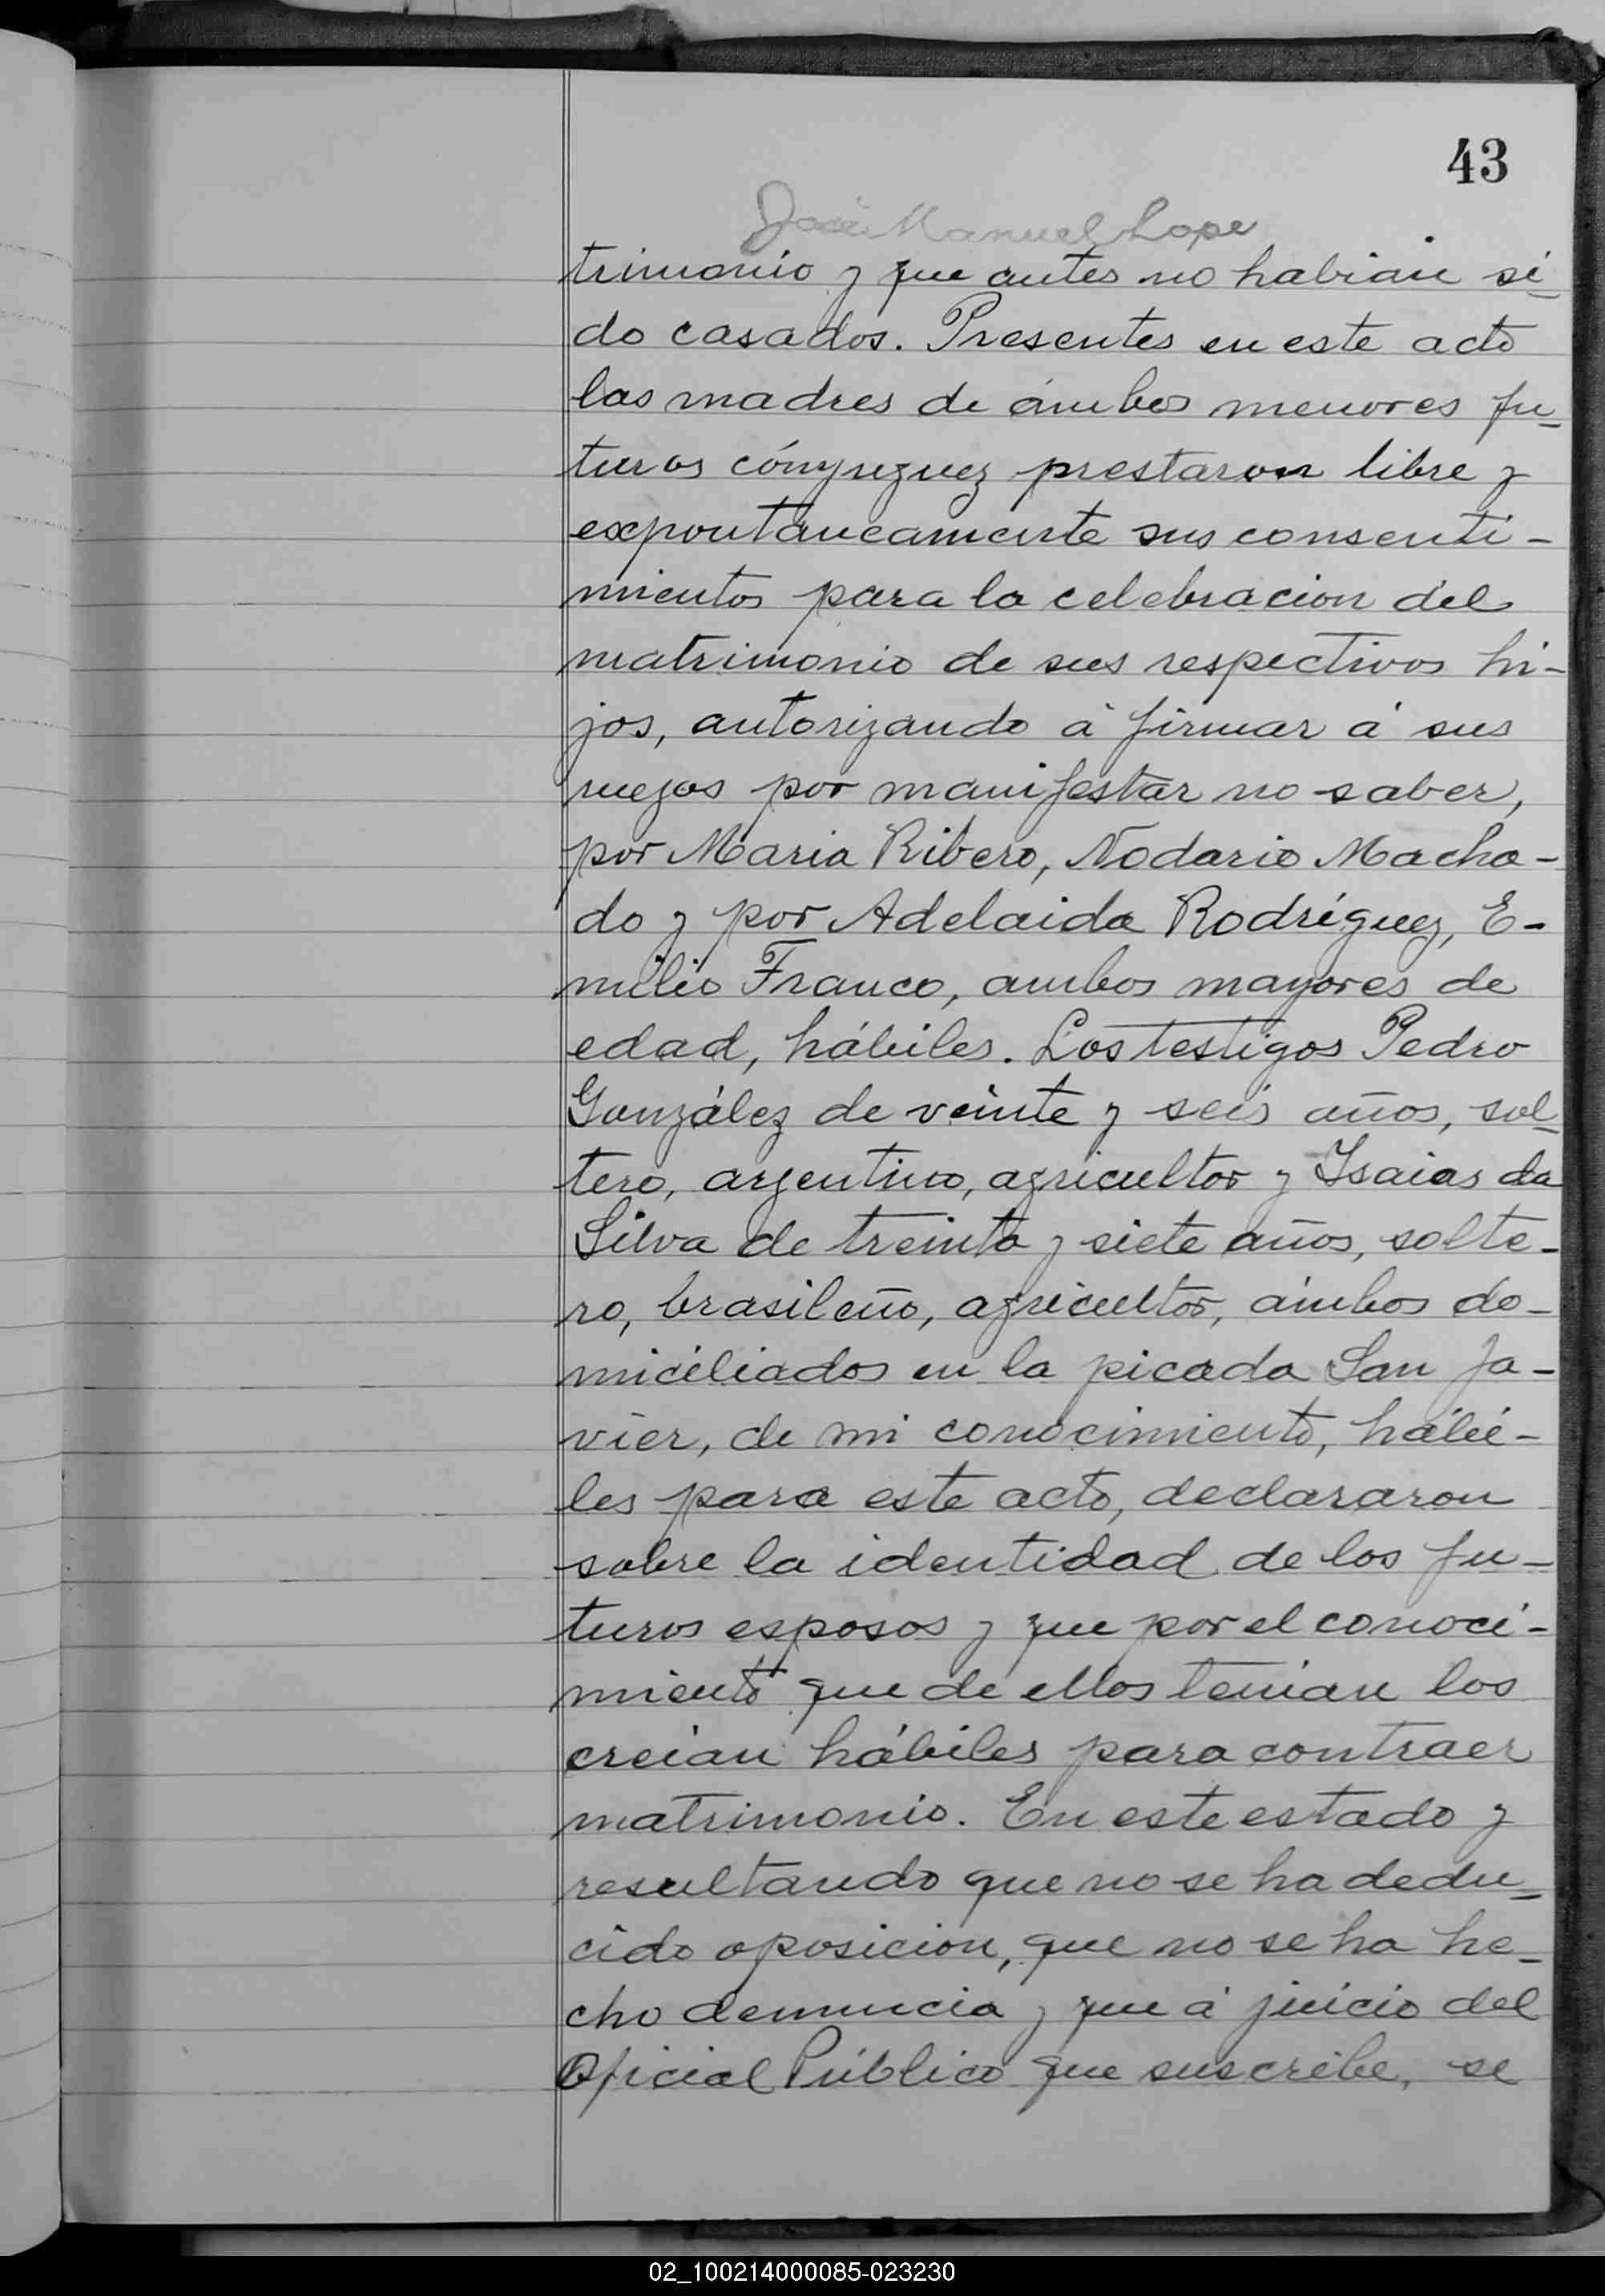 43
José Manuel Lope
trimonio y que antes no habian si-
do casados. Presentes en este acto
las madres de ámbos menores fu-
turos cónyuguez prestaron libre y
expontáneamente sus consenti-
mientos para la celebracion del
matrimonio de sus respectivos hi-
jos, autorizando á firmar á sus
ruegos por manifestar no saber,
por Maria Ribero, Nodario Macha-
do y por Adelaida Rodríguez, E-
milio Franco, ambos mayores de
edad, hábiles. Los testigos Pedro
González de veinte y seis años, sol-
tero, argentino, agricultor y Isaias da
Silva de treinta y siete años, solte-
ro, brasileño, agricultor, ámbos do-
miciliados en la picada San Ja-
vier, de mi conocimiento, hábi-
les para este acto, declararon
sobre la identidad de los fu-
turos esposos y que por el conoci-
miento que de ellos tenian los
creian hábiles para contraer
matrimonio. En este estado y
resultando que no se ha dedu-
cido oposicion, que no se ha he-
cho denuncia y que á juicio del
Oficial Público que suscribe, se
02_100214000085-023230